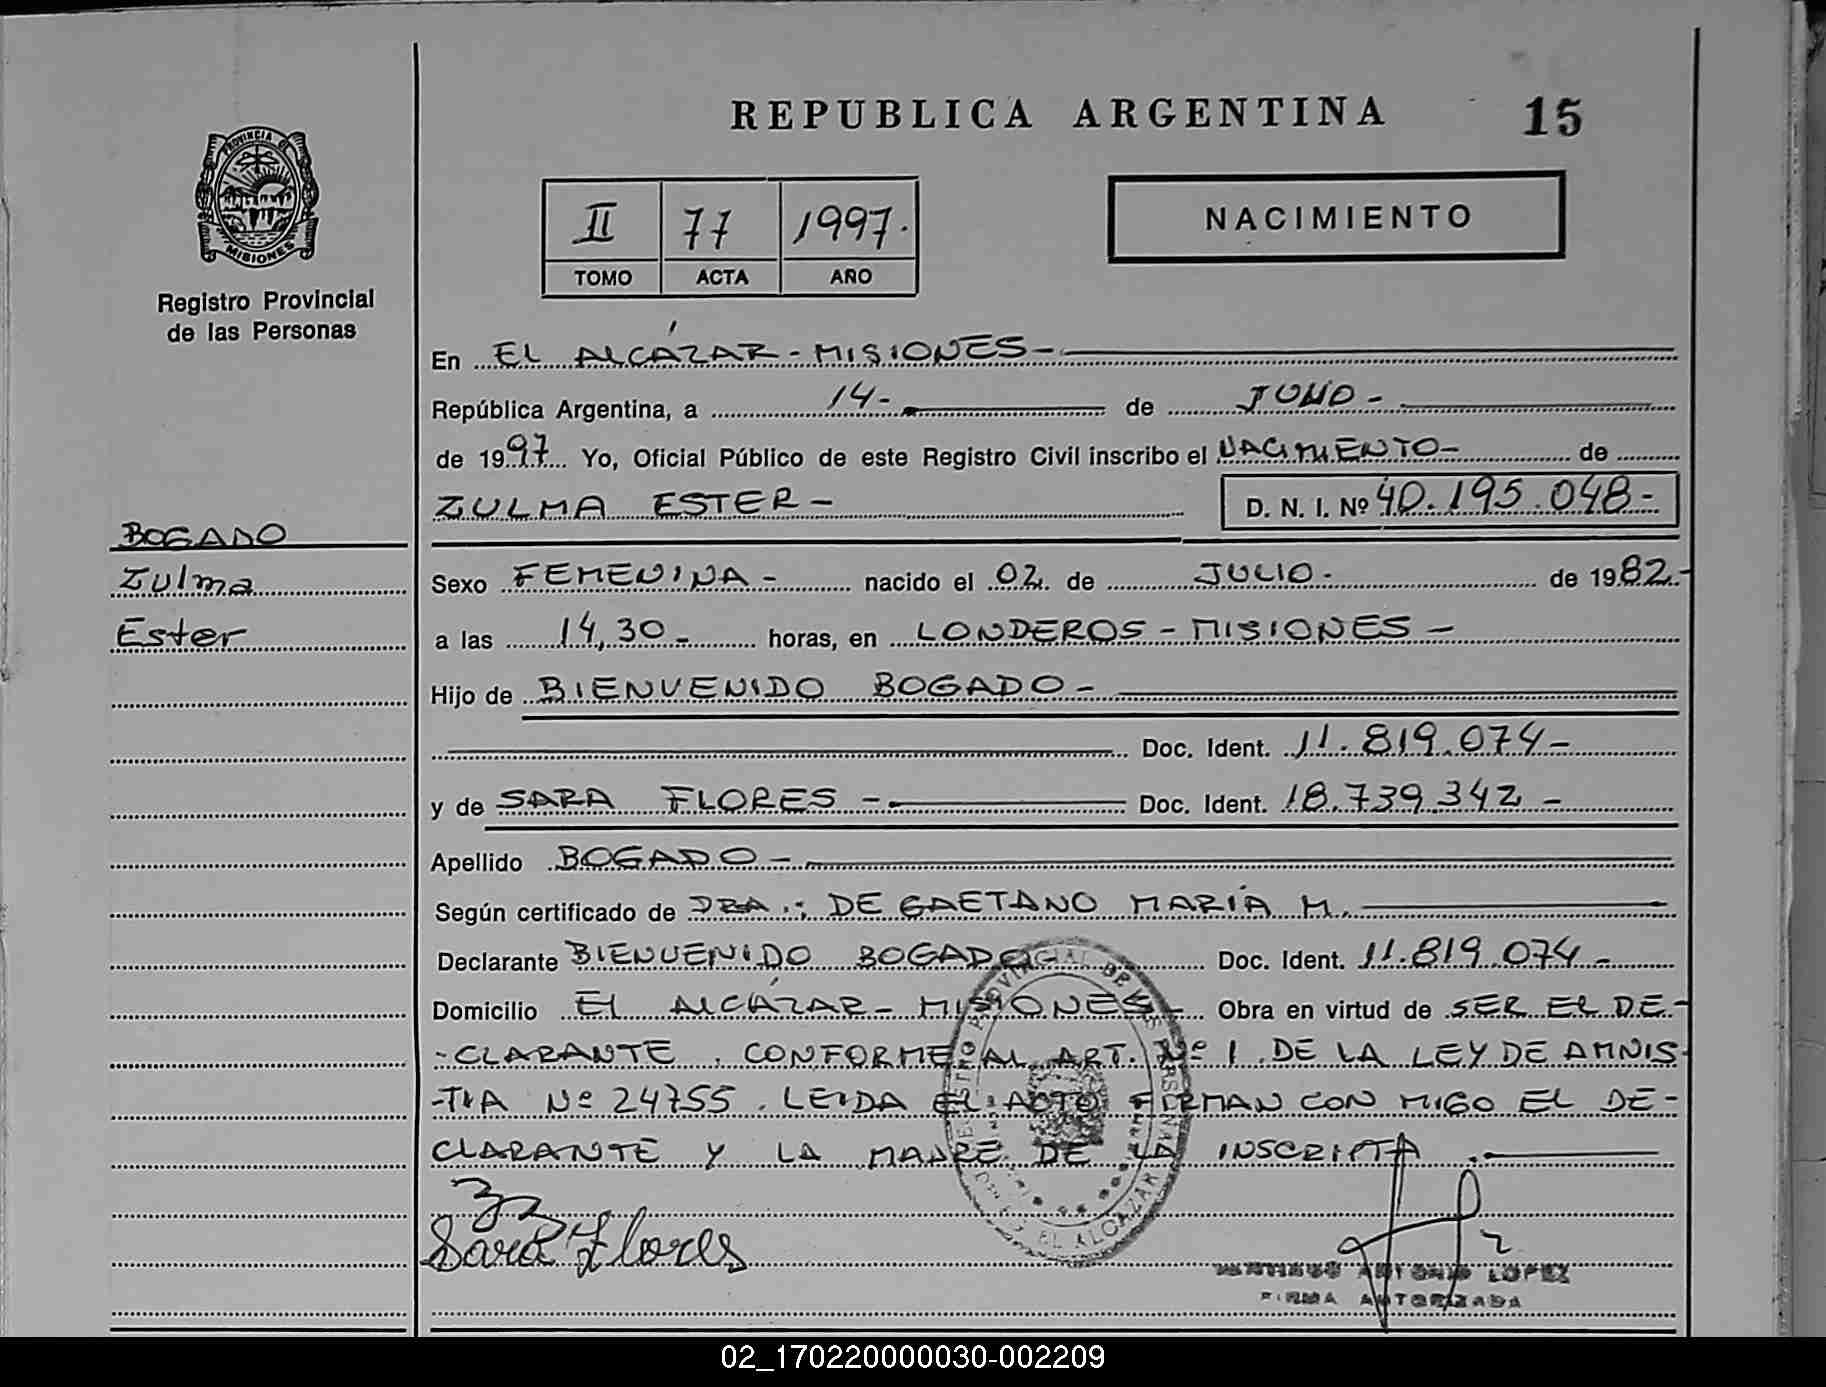 REPUBLICA ARGENTINA 15
PROVINCIA DE
MISIONES
Registro Provincial
de las Personas
II 77 1997.
TOMO ACTA AÑO
NACIMIENTO
En EL ALCÁZAR - MISIONES -
República Argentina, a 14 - de JUNIO -
de 1997 Yo, Oficial Público de este Registro Civil inscribo el NACIMIENTO - de
ZULMA ESTER - D. N. I. Nº 40.195.048 -
BOGADO
Zulma
Ester
Sexo FEMENINA - nacido el 02 de JULIO - de 1982 -
a las 14,30 - horas, en LONDEROS - MISIONES -
Hijo de BIENVENIDO BOGADO -
Doc. Ident. 11.819.074 -
y de SARA FLORES - Doc. Ident. 18.739.342 -
Apellido BOGADO -
Según certificado de DRA.: DE GAETANO MARÍA M.
Declarante BIENVENIDO BOGADO Doc. Ident. 11.819.074 -
Domicilio EL ALCÁZAR - MISIONES - Obra en virtud de SER EL DE-
-CLARANTE. CONFORME AL ART. Nº 1 DE LA LEY DE AMNIS-
-TIA Nº 24755. LEIDA EL ACTO FIRMAN CON MIGO EL DE-
CLARANTE Y LA MADRE DE LA INSCRIPTA.
Sara Flores
ANTONIO LOPEZ
FIRMA AUTORIZADA
EL ALCAZAR
02_170220000030-002209